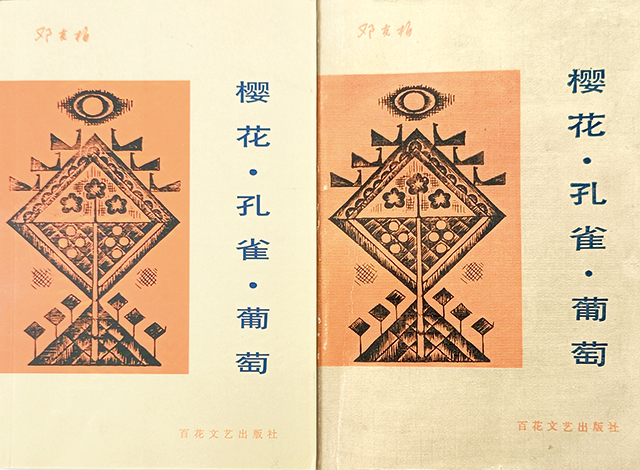 邓友梅
樱花·孔雀·葡萄
百花文艺出版社
邓友梅
樱花·孔雀·葡萄
百花文艺出版社